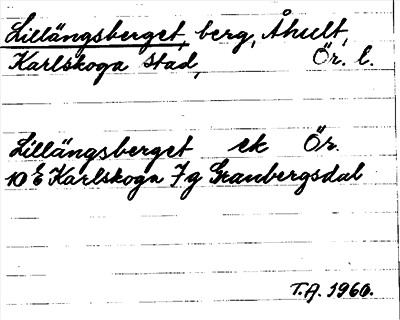 Lillängsberget, berg, Åhult,
Karlskoga stad, Ör. l.
Lillängsberget ek Ör.
10 E Karlskoga 7g Granbergsdal
T.A. 1960.